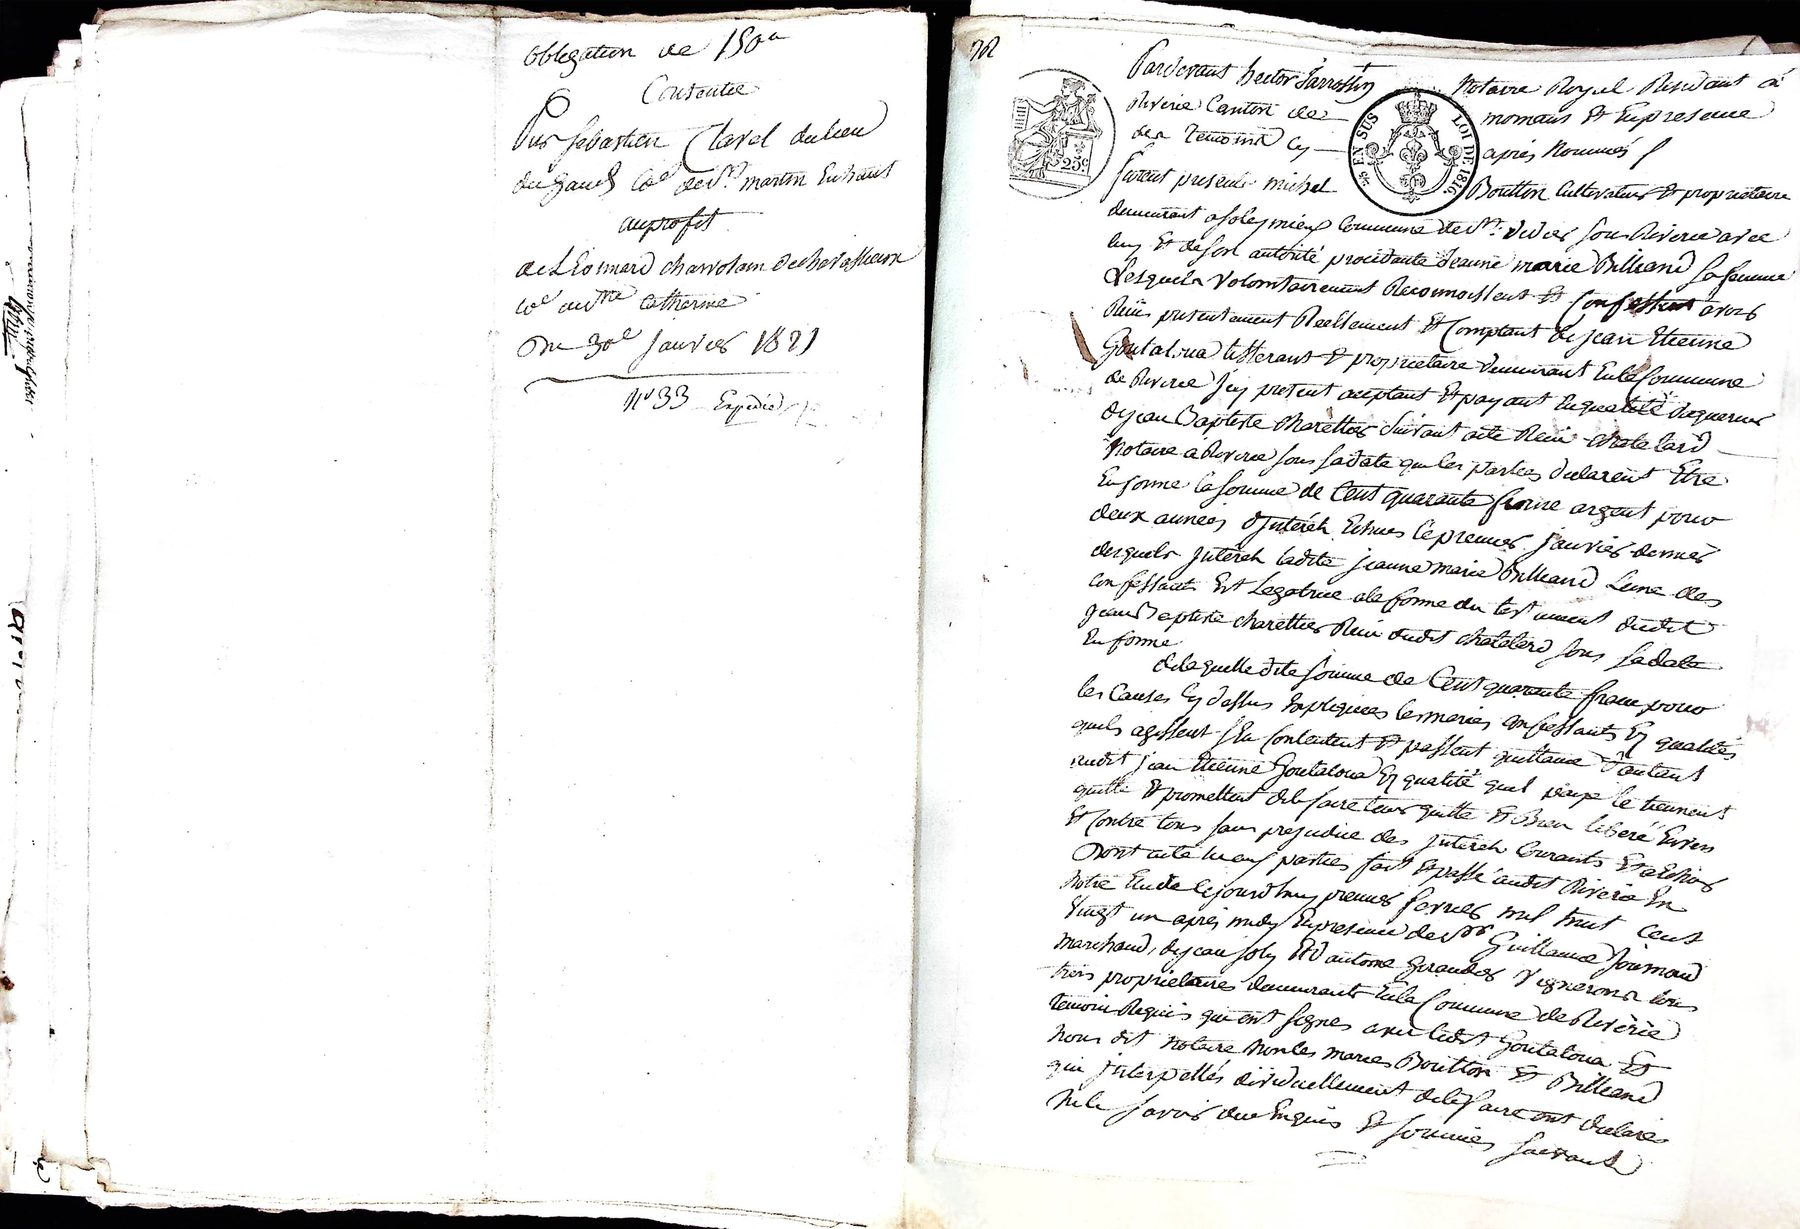 obligation de 150 u
Consentie
Par Sebastien Clavel du lieu
du Co.e de St. martin En haut
au profit
de Léonnard charvolain de chavassieux
co.e de Ste Catherine
Du 30e janvier 1821
No 33 Expedié
Pardevant hector Notaire Royal Residant à
Riverie Canton de mornant Et En presence
des temoins Cy après Nommés
furent presents michel Boutton Cultivateur Et proprietaire
demeurant a soleymieux Commune de St. didier sous Riverie avec
luy Et de son autorité procedante Jeanne marie Billiand sa femme
Lesquels Volontairement Reconnoissent Et Confessent avoir
Reçu presentement Reellement Et Comptant de jean Etienne
Goutaloua tisserant Et proprietaire demeurant En la Commune
de Riverie jcy present aceptant Et payant En qualité d'aquereur
de jean Baptiste Charettier suivant acte Reçu Chatelard
Notaire a Riverie sous sa date que les parties declarent Etre
En forme la somme de Cent quarante franc argent pour
deux années d'jnterêts Echues le premier janvier dernier
desquels jnterêts ladite jeanne marie Billiand L'une des
confessants Est Legatrice a la forme du testament dudit
jean Baptiste charettier Reçu dudit chatelard sous sa date
En forme
de laquelle dite somme de Cent quarante franc pour
les Causes Cy dessus Expliquées les maries confessants Es qualités
quils agissent s'En Contentent Et passent quittance d'autant
audit jean Etienne Goutaloua Es qualité quil le tiennent
quitte Et promettent de le faire tenir quitte Et Bien liberé Envers
Et Contre tous sans prejudice des jnterêts Courants Et a Echoir
Dont acte lu aux parties fait Et passé audit Riverie En
Notre Etude Cejourdhuy premier fevrier mil huit Cent
Vingt un après midy En presence de Srs Guillaume Joumard
marchand, de jean joly Et d'antoine Giraudier Vignerons tous
trois proprietaires demeurants En la Commune de Riverie
temoins Requis qui ont signés avec ledit Goutaloua Et
Nous dit Notaire Non les maries Boutton Et Billiand
qui jnterpellés de le faire ont declarés
Ne le savoir due Enquis Et sommés suivant
25 c
EN SUS
LOI DE 1816.